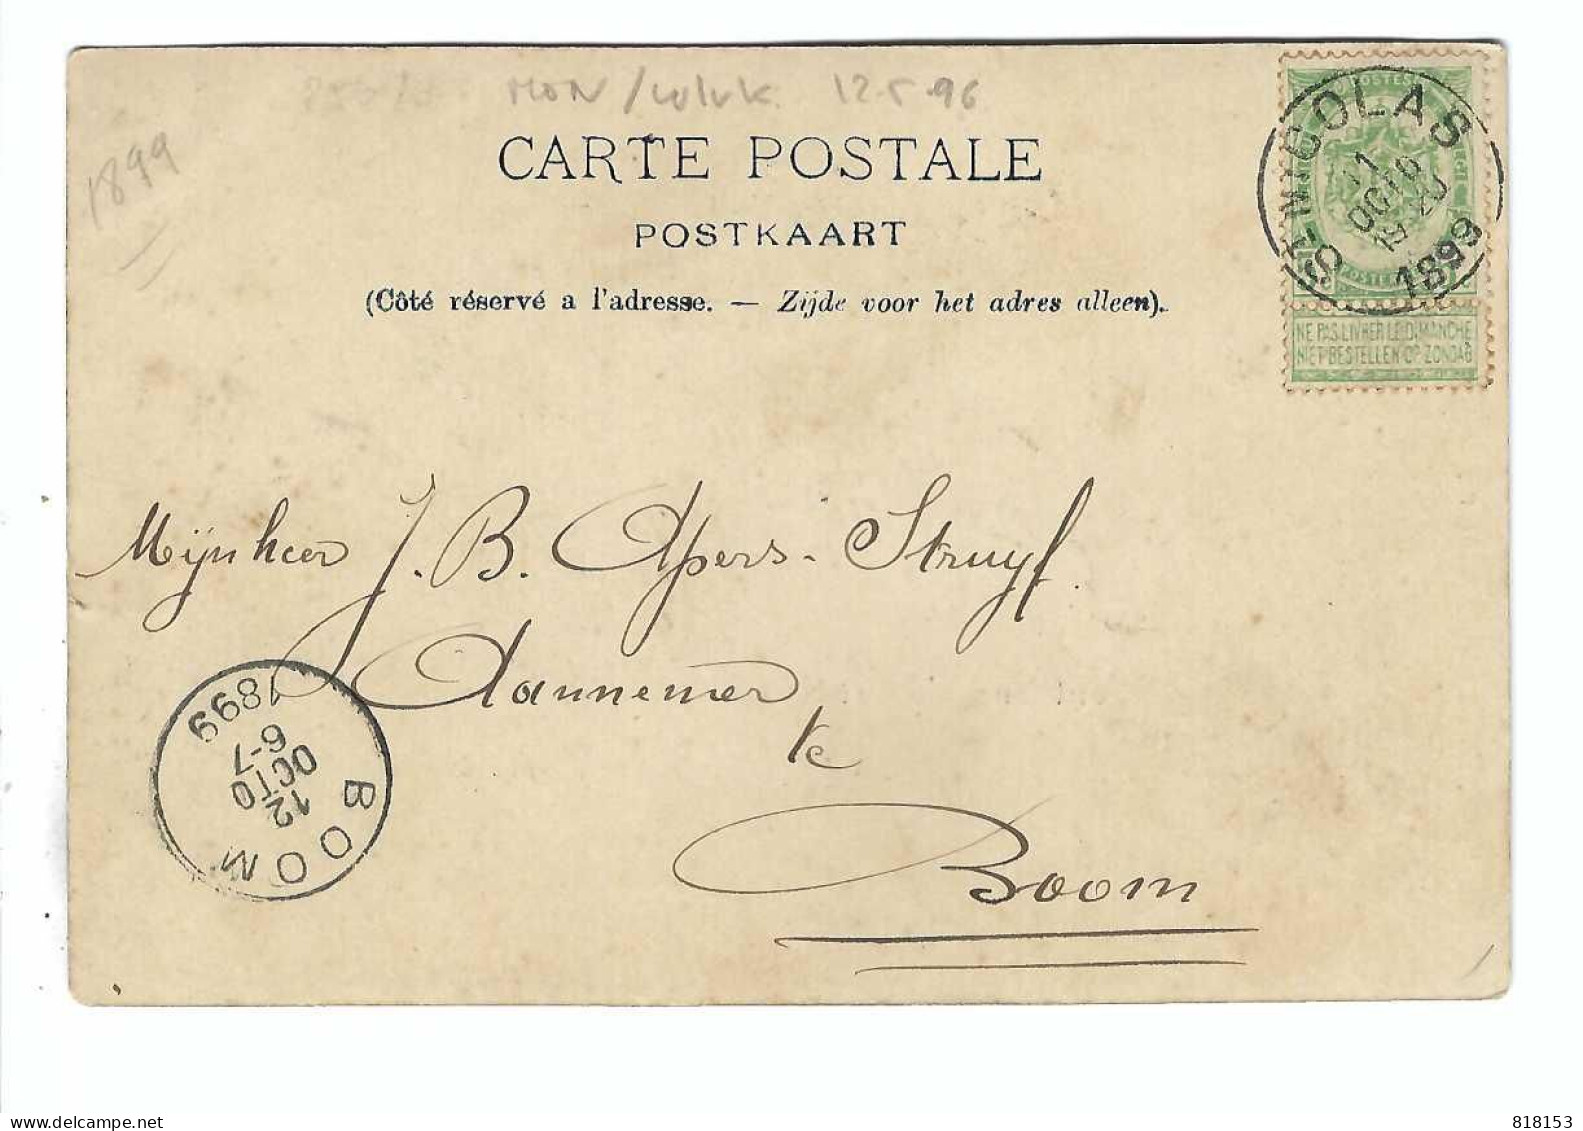 12.5.96
1899
CARTE POSTALE
POSTKAART
(Côté réservé a l'adresse. — Zijde voor het adres alleen).
ST-NICOLAS
11
OCTO
1899
POSTER
NE PAS LIVRER LE DIMANCHE
NIET BESTELLEN OP ZONDAG
Mijnheer J. B. Apers-Struyf.
Aannemer
te
Boom
BOOM
12
OCTO
6-7
1899
delcampe.net
818153